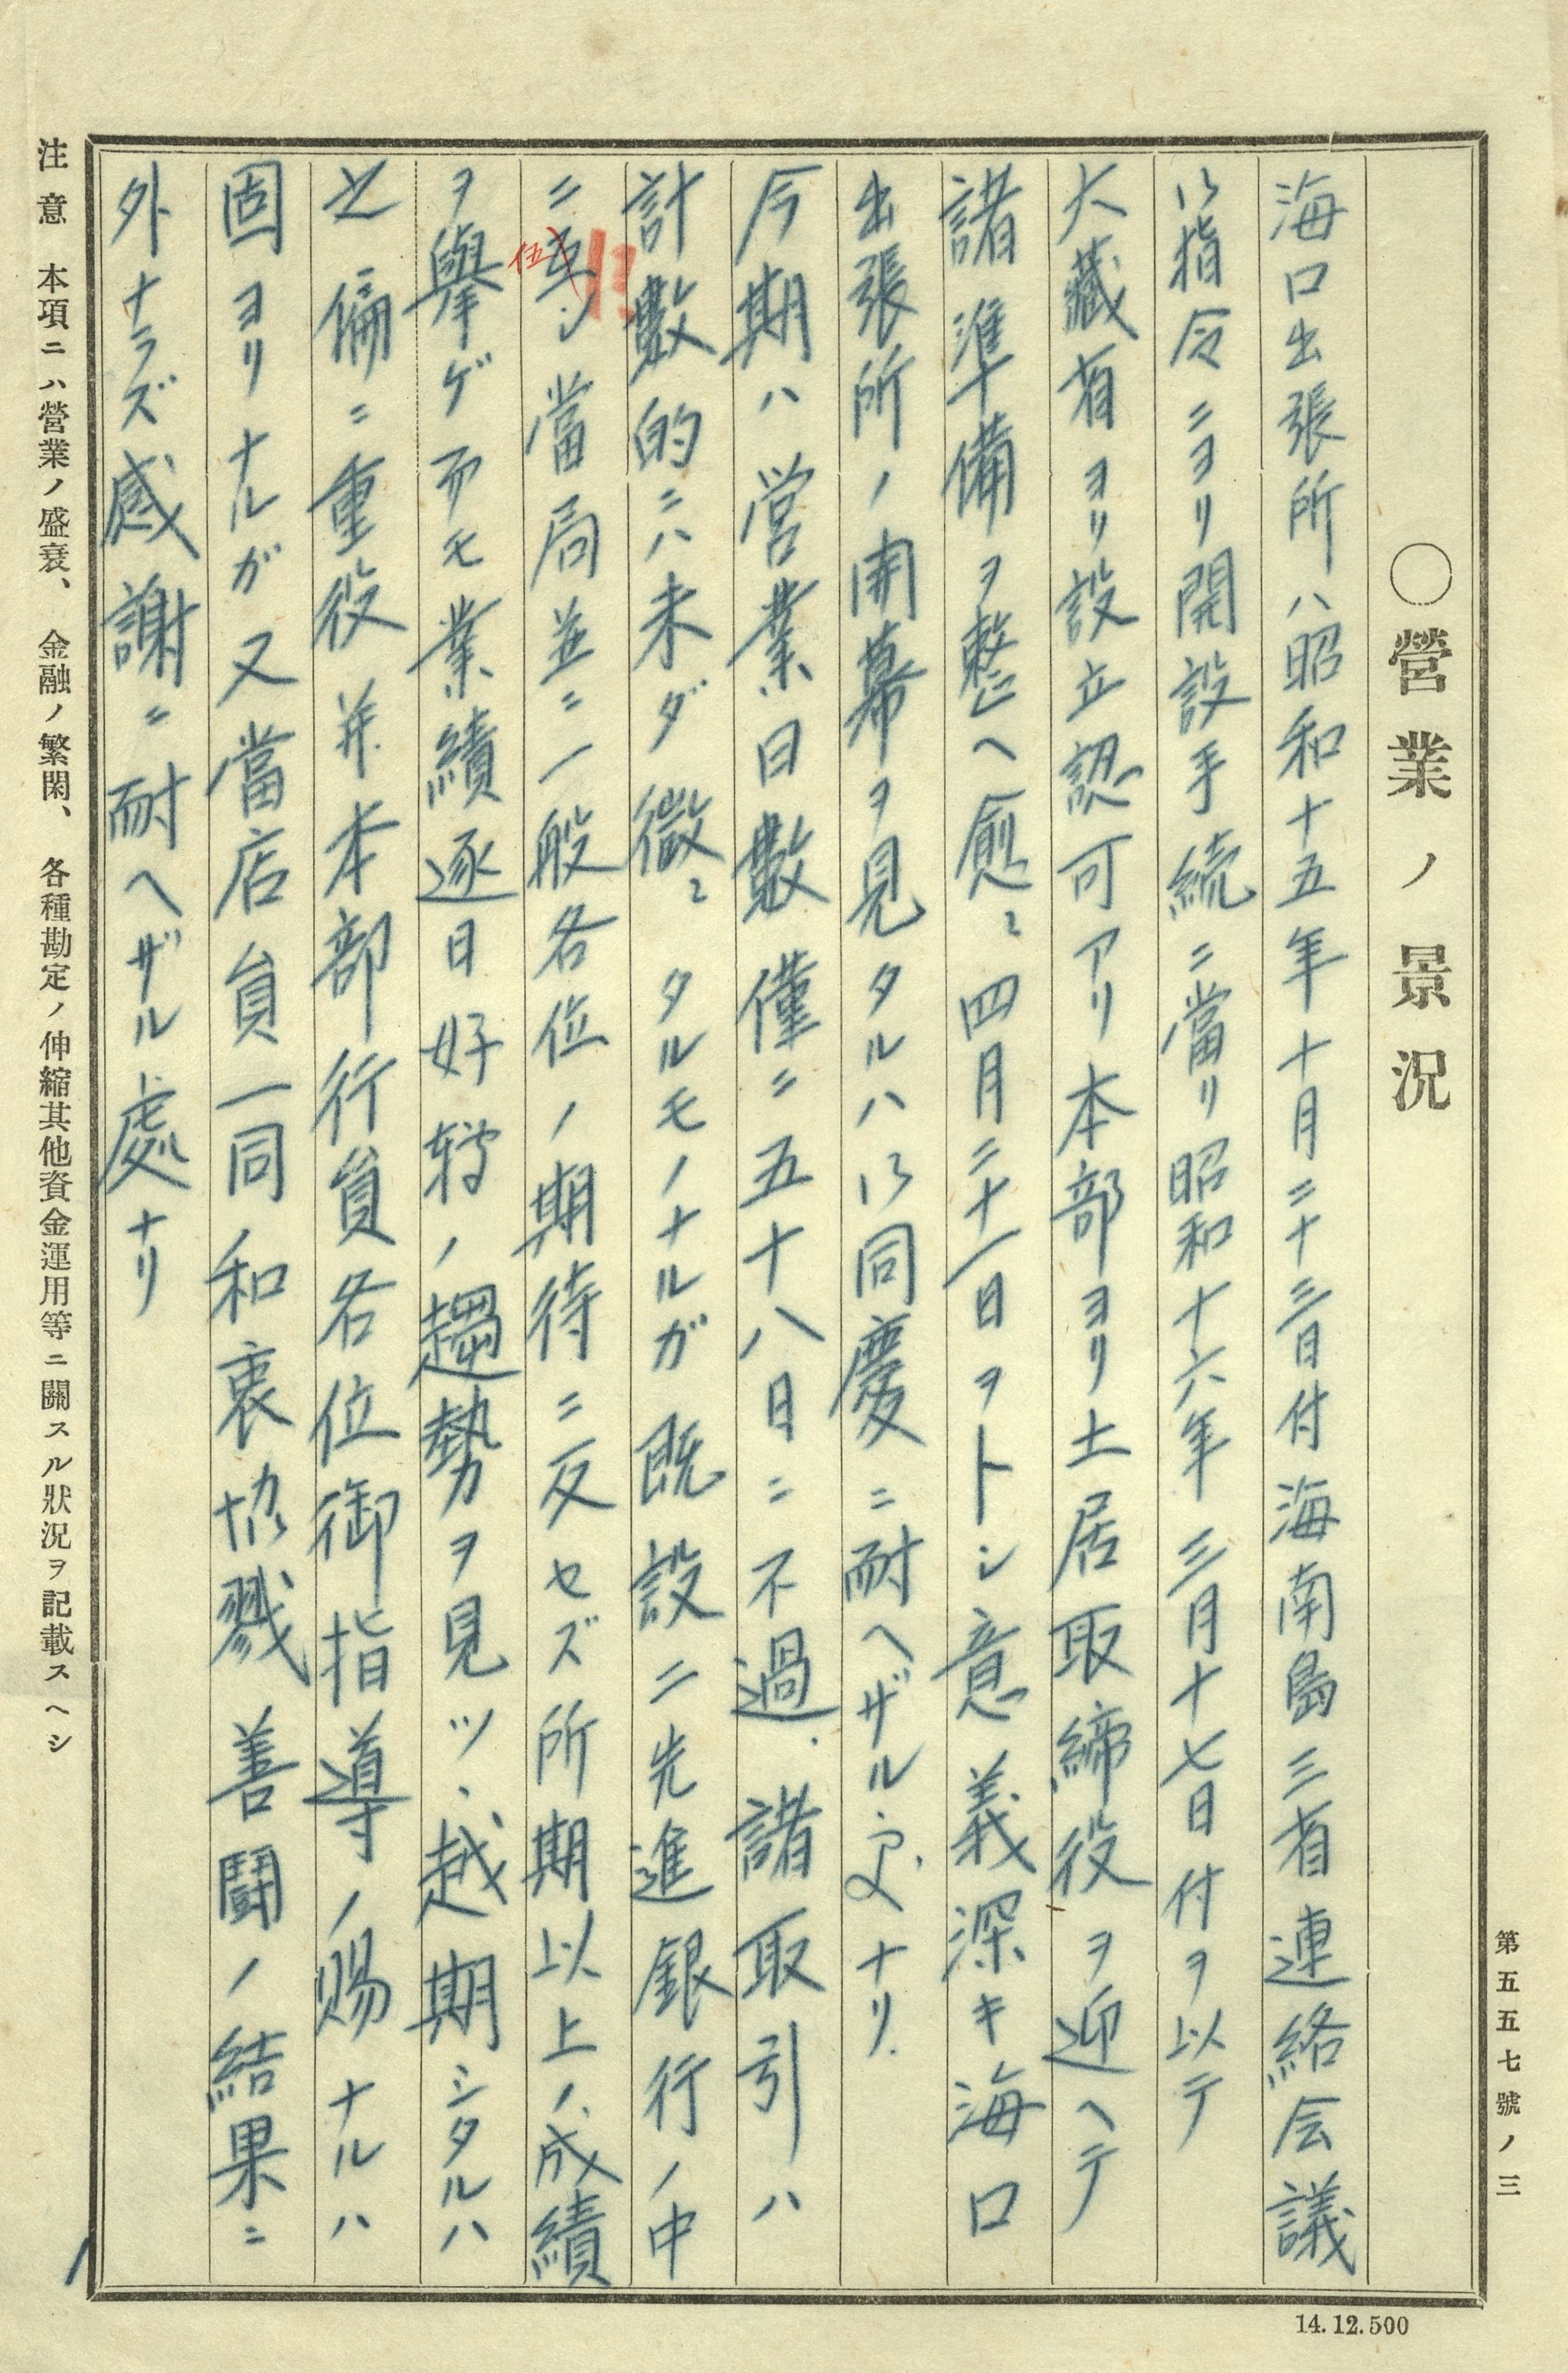 第五五七號ノ三
○營業ノ景況
海口出張所ハ昭和十五年十月二十三日付海南島三省連絡会議
以指令ニヨリ開設手続ニ當リ昭和十六年三月十七日付ヲ以テ
大藏省ヨリ設立認可アリ本部ヨリ土居取締役ヲ迎ヘテ
諸準備ヲ整ヘ愈〻四月二十一日ヲトシ意義深キ海口
出張所ノ開幕ヲ見タルハ以同慶ニ耐ヘザル処ナリ.
今期ハ営業日數僅ニ五十八日ニ不過.諸取引ハ
計數的ニハ未ダ微〻タルモノナルガ既設ニ先進銀行ノ中
ニ伍シ當局並ニ一般各位ノ期待ニ反セズ所期以上ノ成績
ヲ擧ゲ而モ業績逐日好轉ノ趨勢ヲ見ツヽ越期シタルハ
之偏ニ重役並本部行員各位御指導ノ賜ナルハ
固ヨリナルガ又當店員一同ノ和衷協戮善闘ノ結果ニ
外ナラズ感謝ニ耐ヘザル處ナリ
注意 本項ニハ營業ノ盛衰、金融ノ繁閑、各種勘定ノ伸縮其他資金運用等ニ關スル狀況ヲ記載スヘシ
14.12.500